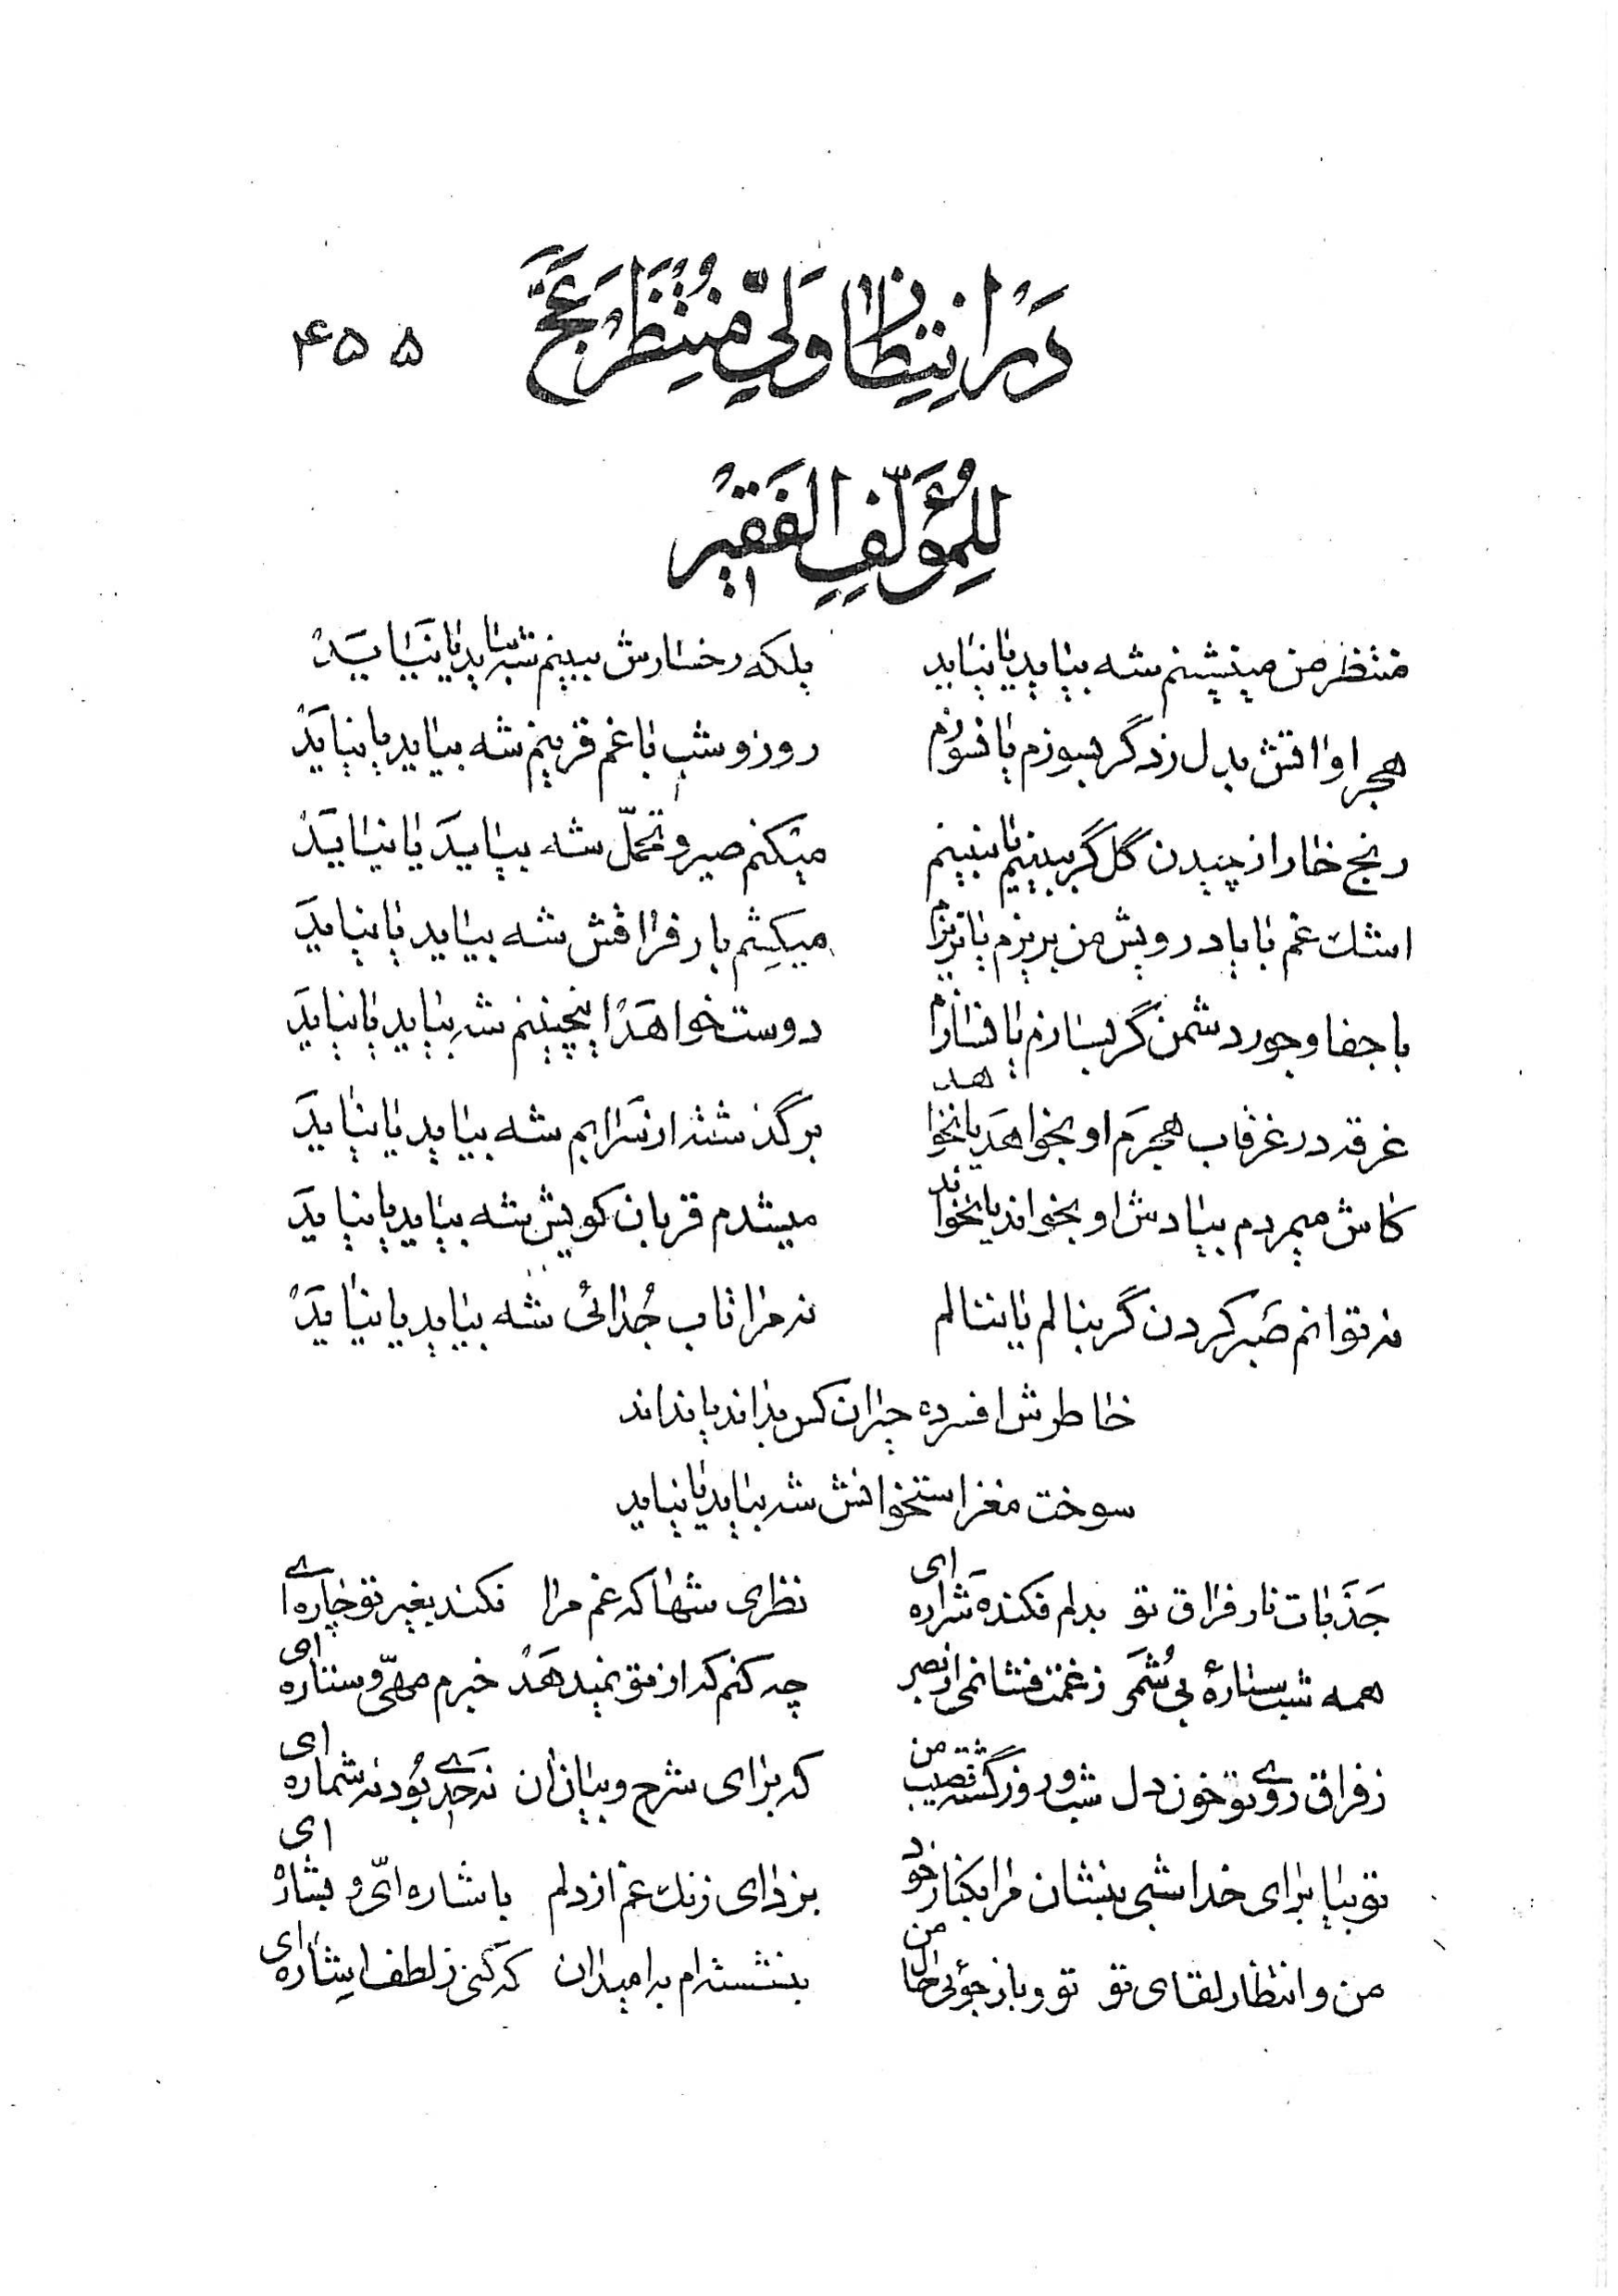 در انتظار ولی منتظر عج ۴۵۵
للمؤلف الفقیر
منتظر من مینشینم شه بیاید یا نیاید بلکه رخسارش ببینم شه بیاید یا نیاید
هجر او آتش بدل زد گر بسوزم یا نسوزم روز و شب با غم قرینم شه بیاید یا نیاید
رنج خار از چیدن گل گر ببینم یا نبینم میکنم صبر و تحمّل شه بیاید یا نیاید
اشک غم با یاد رویش من بریزم یا نریزم میکشم بار فراقش شه بیاید یا نیاید
با جفا و جور دشمن گر بسازم یا نسازم دوست خواهد اینچنینم شه بیاید یا نیاید
غرقه در غرقاب هجرم او بخواهد یا نخواهد برگذشته از سر ابم شه بیاید یا نیاید
کاش میمردم بیادش او بخواند یا نخواند میشدم قربان کویش شه بیاید یا نیاید
نه توانم صبر کردن گر بنالم یا ننالم نه مرا تاب جدائی شه بیاید یا نیاید
خاطرش افسرده حیران کس بداند یا نداند
سوخت مغز استخوانش شه بیاید یا نیاید
جذبات نار فراق تو بدلم فکنده شراره ای نظری شها که غم مرا نکند بغیر تو چاره ای
همه شب ستارهٔ بی شمر ز غمت فشانمی از بصر چه کنم که از تو نمیدهد خبرم مهی و ستاره ای
ز فراق روی تو خون دل شب و روز گشته نصیب من که برای شرح و بیان ان نه حدی بود نه شماره ای
تو بیا برای خدا شبی بنشان مرا بکنار خود بزدای زنک غم از دلم باشاره ائی و بشاره ای
من و انتظار لقای تو تو و باز جوئی حال من بنشسته ام به امید ان که کنی ز لطف اشاره ای